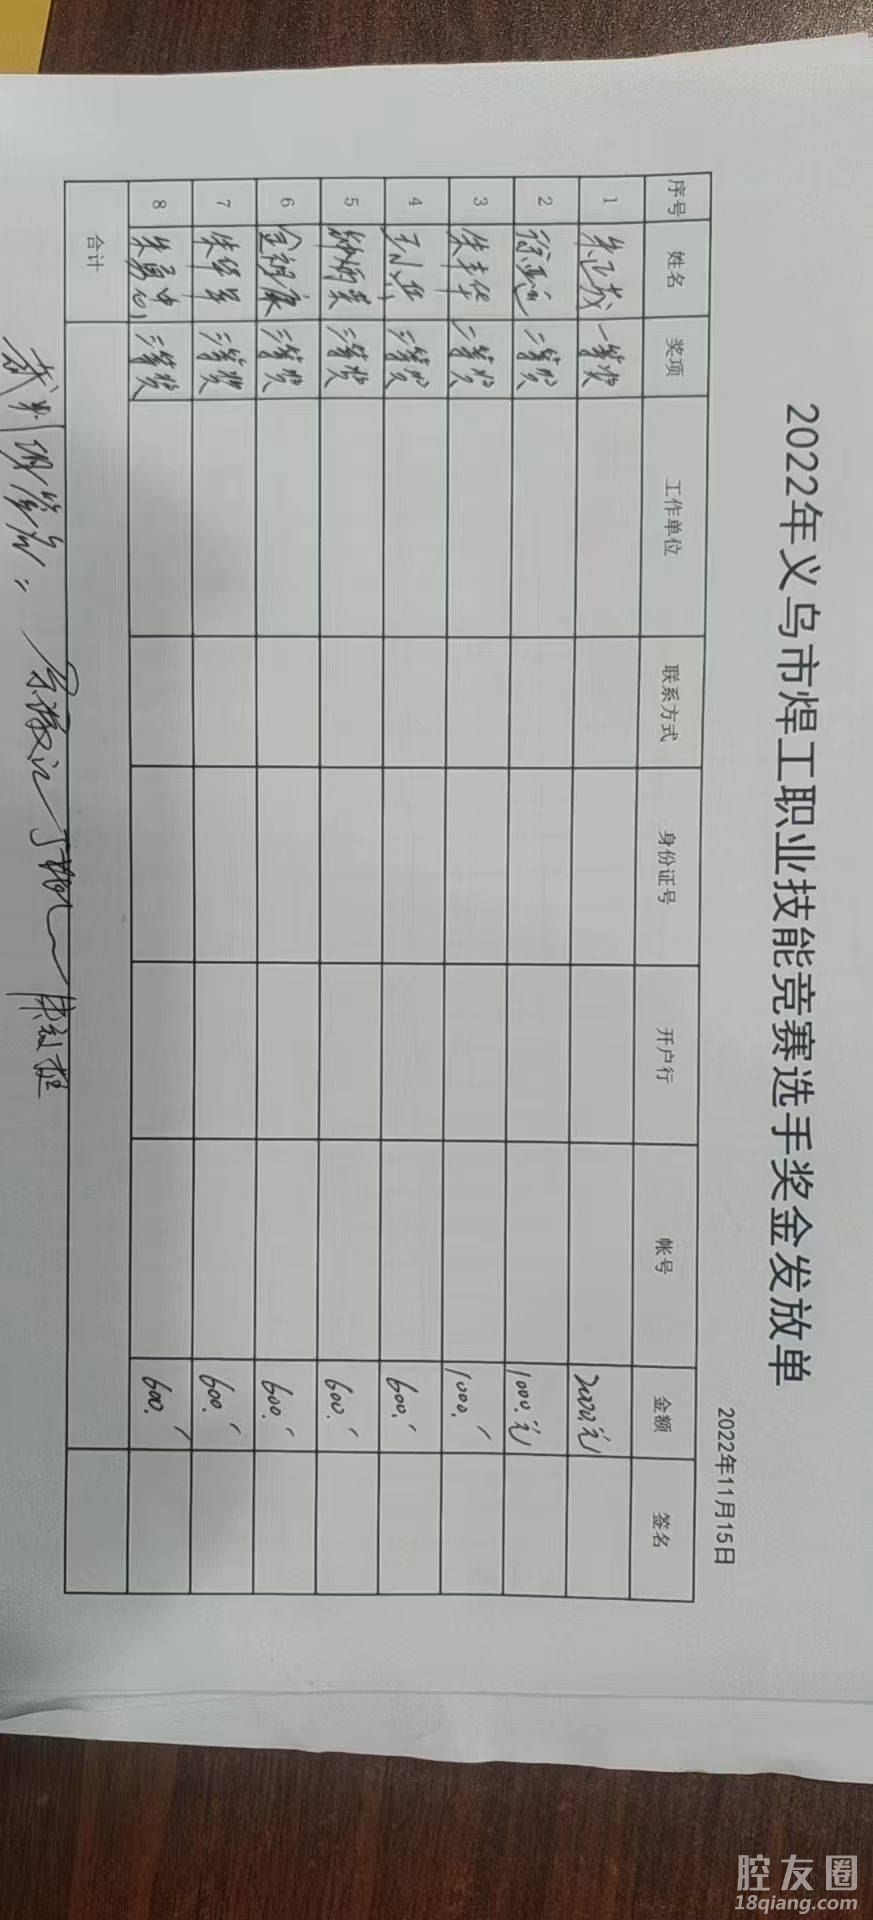 2022年义乌市焊工职业技能竞赛选手奖金发放单
2022年11月15日
序号 姓名 奖项 工作单位 联系方式 身份证号 开户行 帐号 金额 签名
1 朱正茂 一等奖 2000.元
2 二等奖 1000.元
3 二等奖 1000.〃
4 三等奖 600.〃
5 三等奖 600.〃
6 金祖康 三等奖 600.〃
7 朱华军 三等奖 600.〃
8 三等奖 600.〃
合计
裁判
腔友圈
18qiang.com